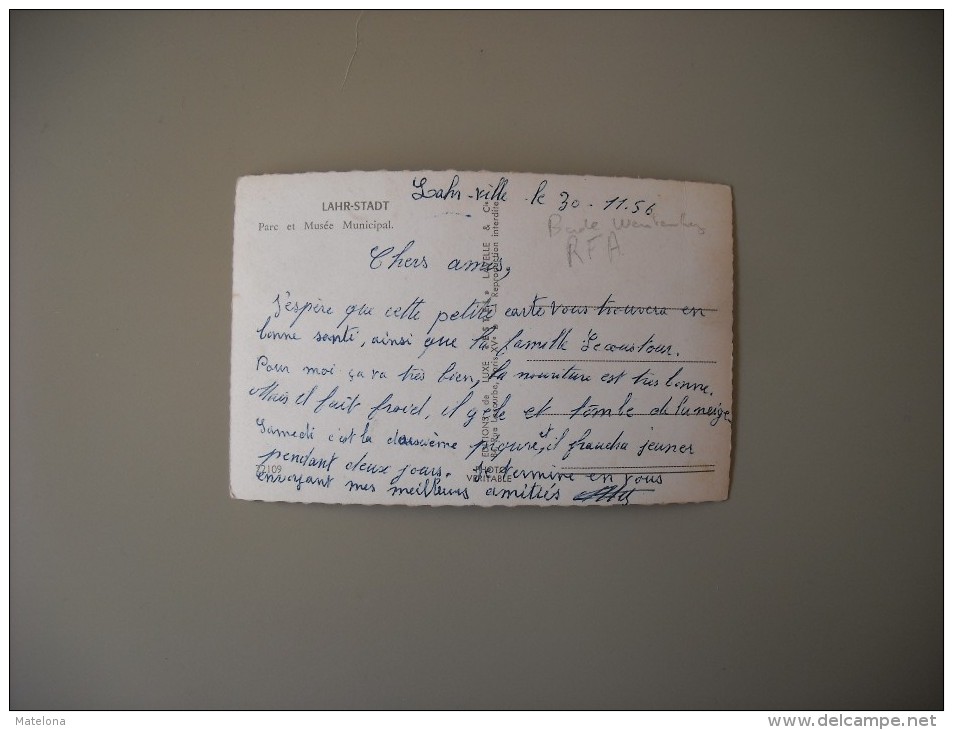 Lahr-ville le 30-11-56
LAHR-STADT
Parc et Musée Municipal.
Bade
RFA
Chers amis,
J'espère que cette petite carte vous trouvera en
bonne santé, ainsi que la famille Lecoustour.
Pour moi ça va très bien, la nourriture est très bonne.
Mais il fait froid, il gèle et tombe de la neige
Samedi c'est la deuxième piqure, et il faudra jeuner
pendant deux jours. Je termine en vous
envoyant mes meilleurs amitiés
22109
PHOTO
VÉRITABLE
ÉDITIONS de LUXE "ESTEL" LAVELLE & Cie
Rue Lecourbe, Paris XVe - Reproduction interdite
Matelona
http://www.delcampe.net